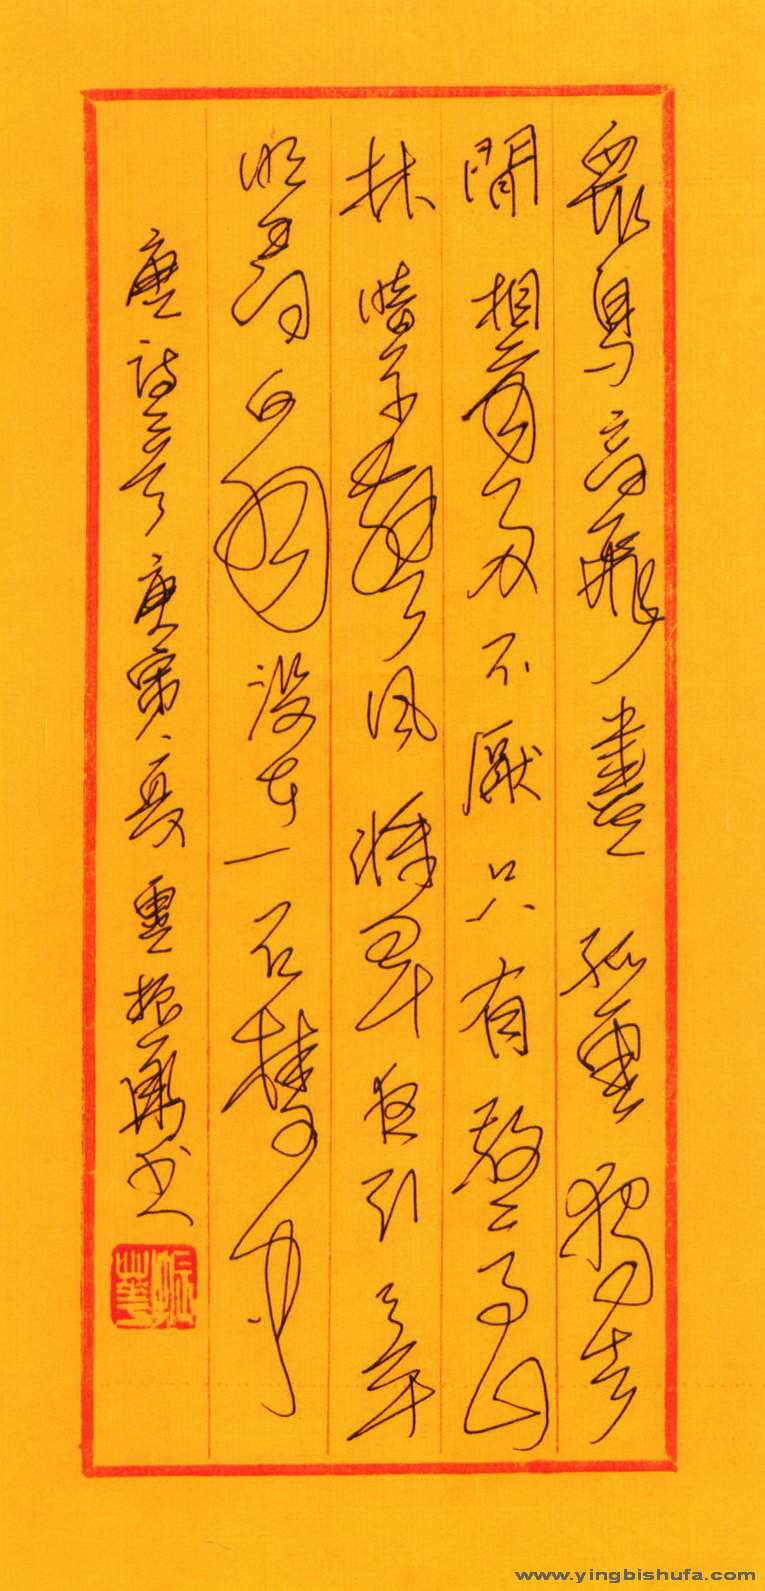 眾鳥高飛盡孤雲獨去
閒相看兩不厭只有敬亭山
林暗草驚風將軍夜引弓平
明尋白羽沒在石棱中
唐詩二首庚寅夏振書
www.yingbishufa.com